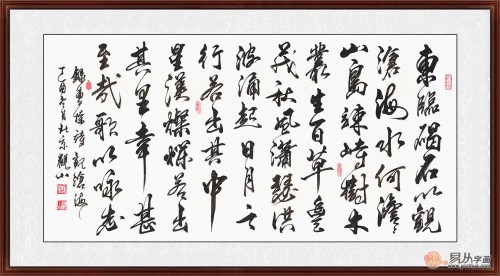 東臨碣石以觀
滄海水何澹々
山島竦峙樹木
叢生百草豐
茂秋風瀟瑟洪
波涌起日月之
行若出其中
星漢燦爛若出
其里幸甚
至哉歌以咏志
錄曹操詩觀滄海
丁酉冬月
易从字画